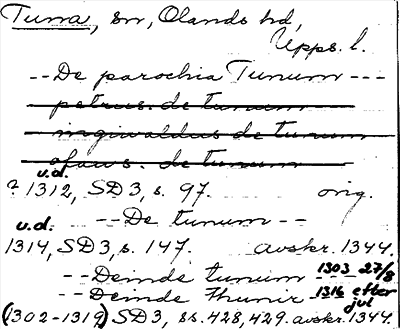 Tuna, sn, Olands hd,
Upps. l.
-- De parochia Tunum ---
petrus. de tunum
ingiwaldus de tunum
olaus. de tunum
u.d.
? 1312, SD 3, s. 97. orig.
u.d. -- De tunum --
1314, SD 3, s. 147. avskr. 1344.
-- Deinde tunum -- 1303 27/8
-- Deinde thunir -- 1316 efter juli
(1302-1319) SD 3, ss. 428, 429. avskr. 1344.